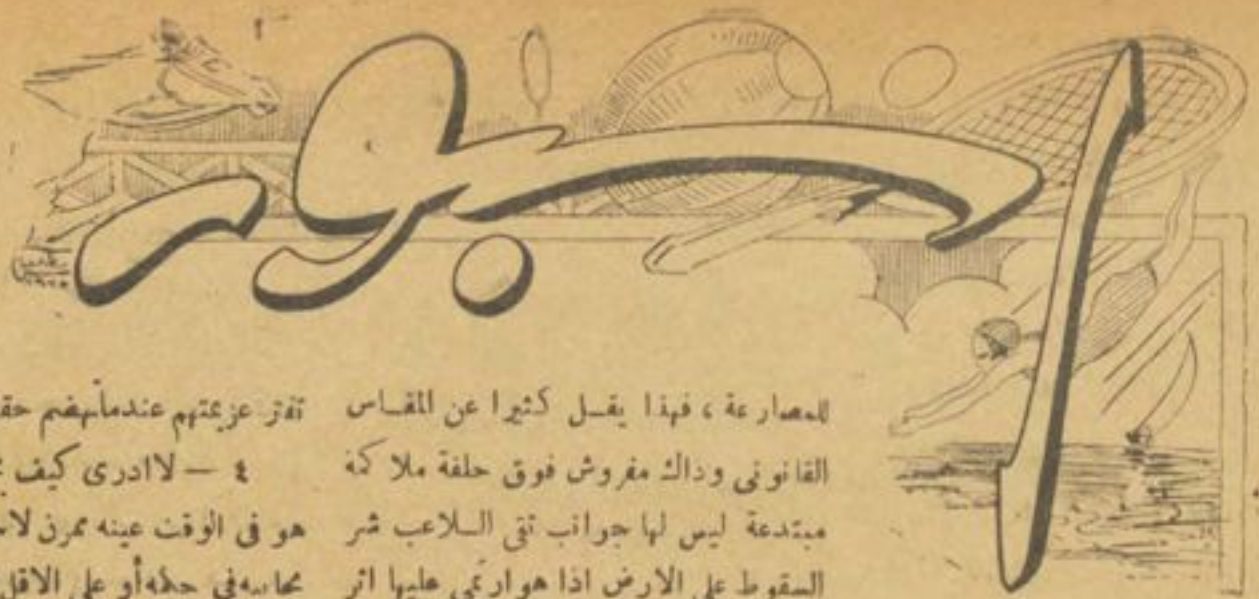 اسبور
للمصارعة ، فهذا يقل كثيرا عن المقاس
القانونى وذاك مفروش فوق حلقة ملاكمة
مبتدعة ليس لها جوانب تقى اللاعب شر
السقوط على الارض اذا هو ارتمى عليها اثر
تفتر عزيمتهم عندما
٤ — لا ادرى كيف
هو فى الوقت عينه ممرن
أو على الاقل